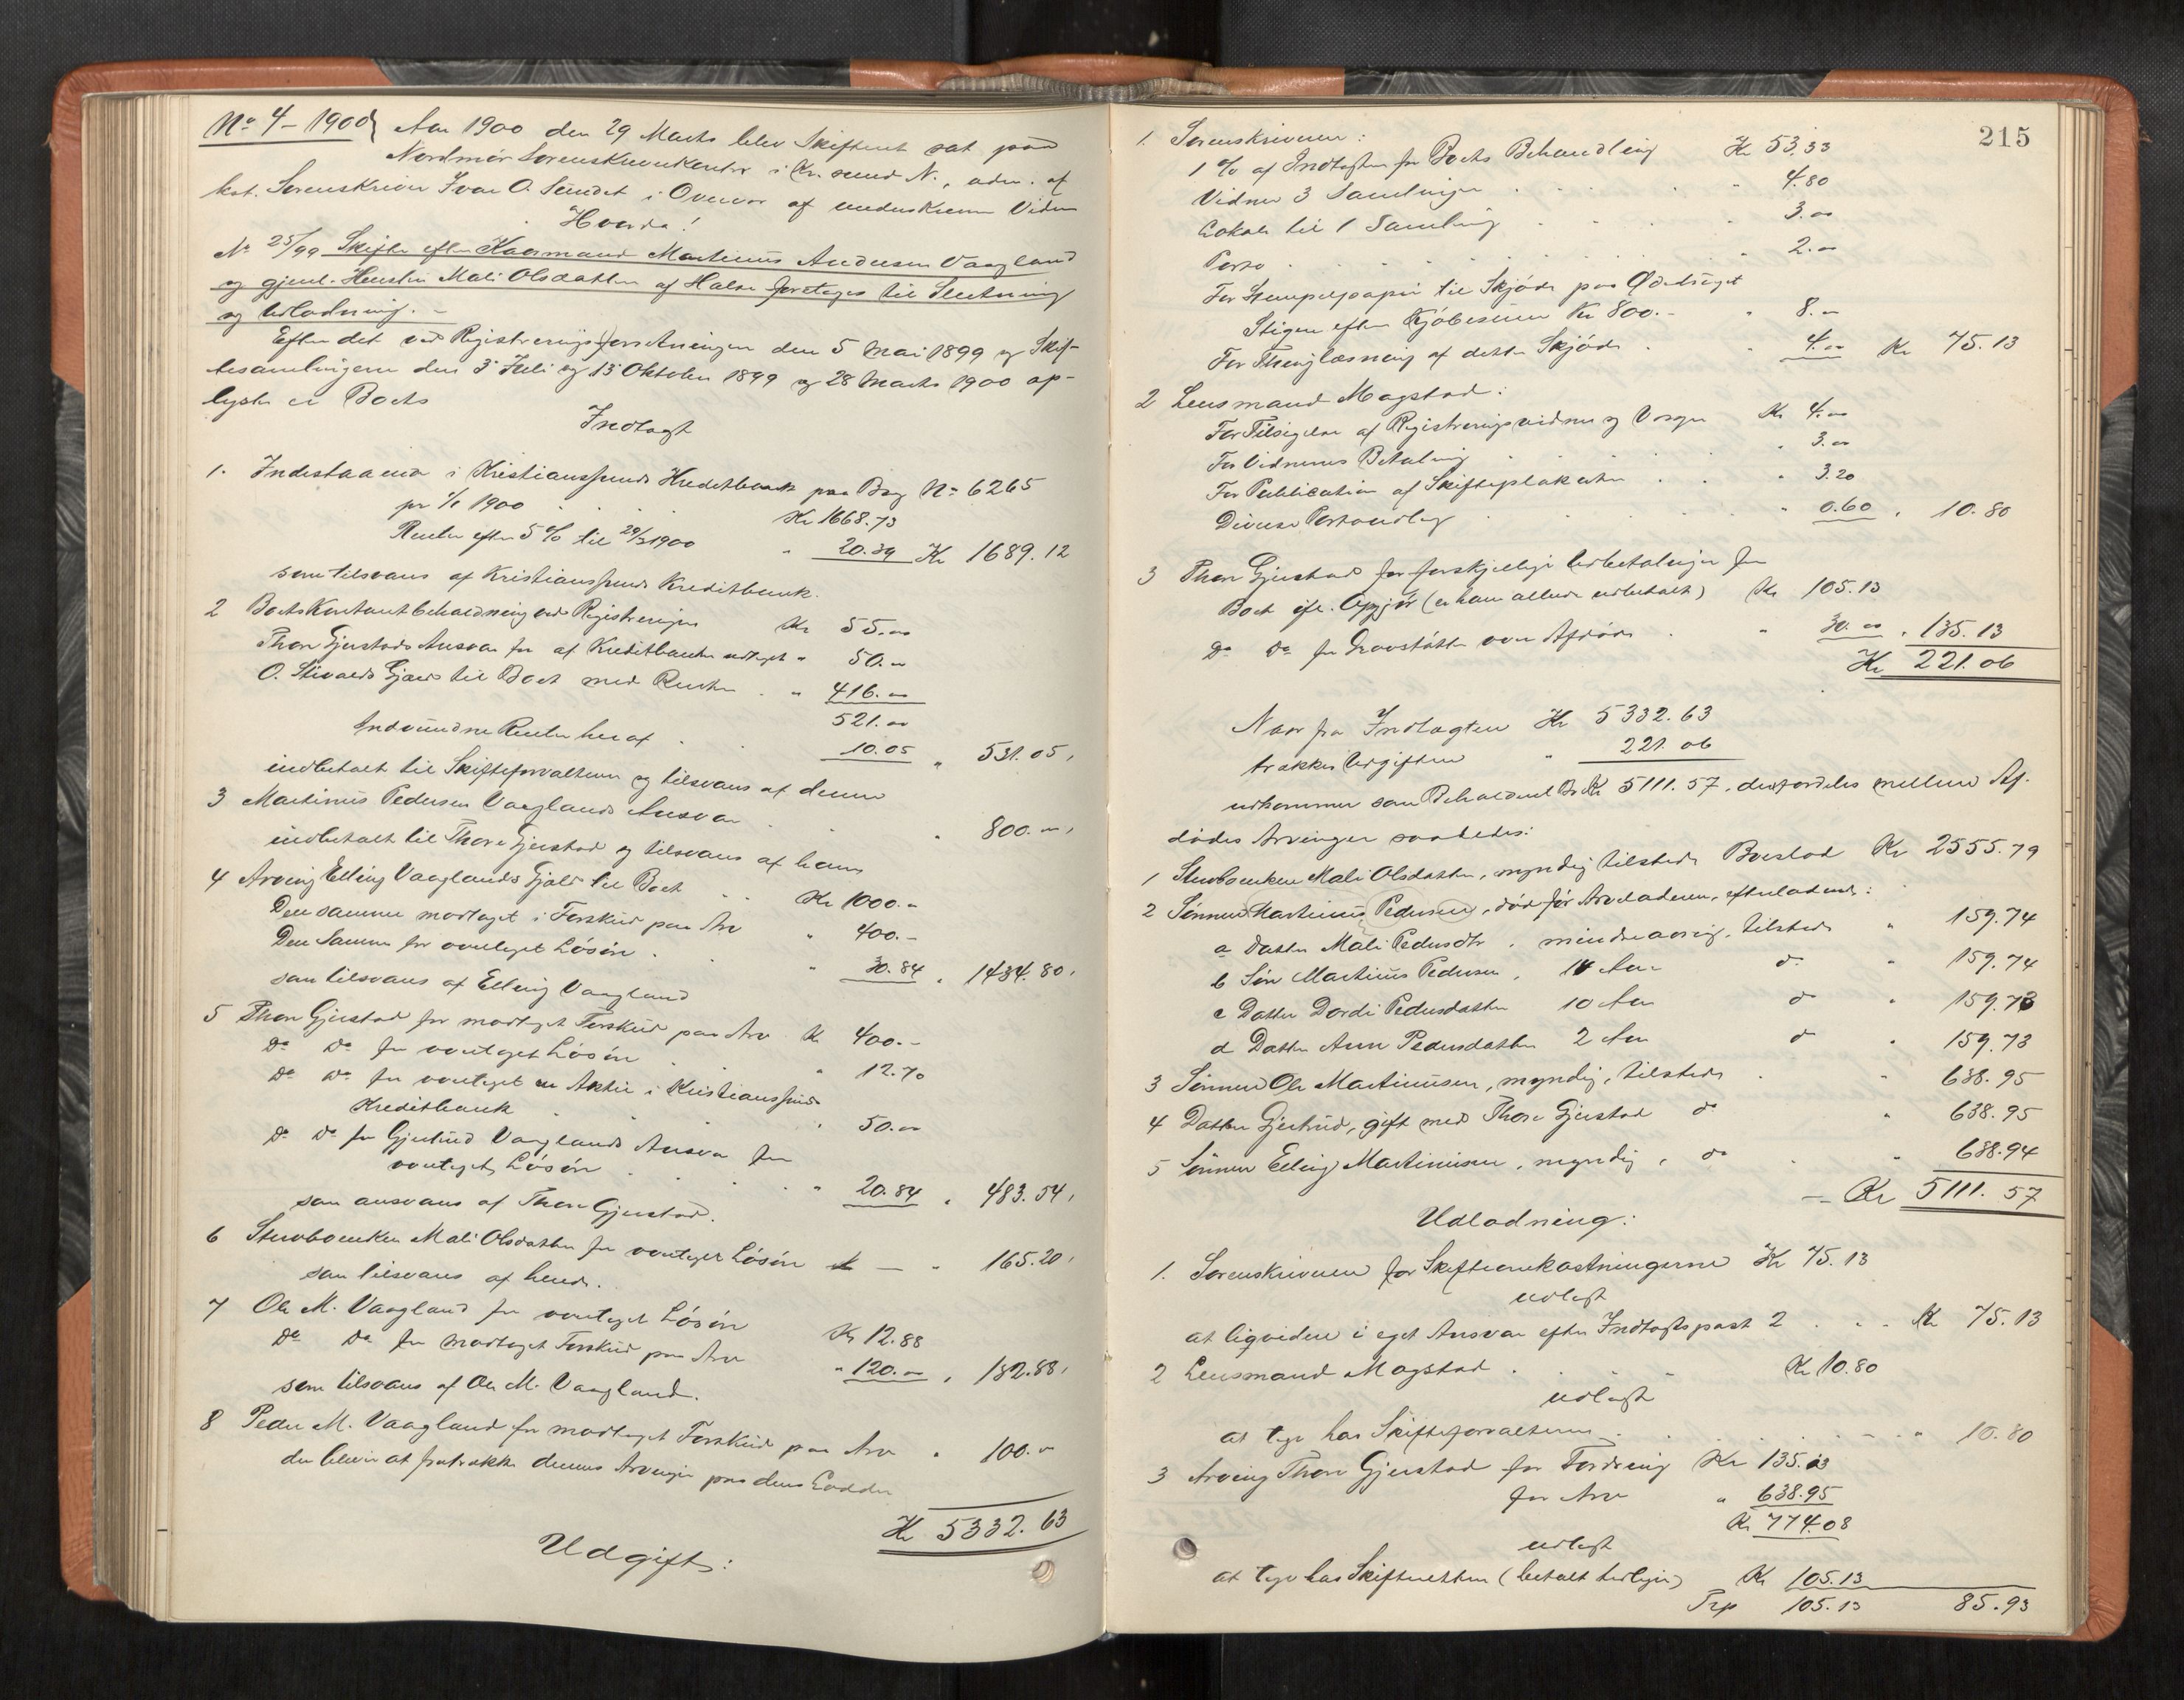 No 4 - 1900 Aar 1900 den 29 Marts blev Skifteret sat paa
Nordmør Sorenskriverkontor i Kr.sund N., adm. af
kst. Sorenskriver Ivar O. Sundet i Overvær af underskrevne Vidner
Hvorda!
No 25/99 Skifte efter Kaarmand Martinus Andersen Vaagland
og gjenl. Hustru Mali Olsdatter af Halse foretages til Slutning
og Udlodning. -
Efter det ved Registreringsforretningen den 5 Mai 1899 og Skif-
tesamlingerne den 3 Juli og 13 Oktober 1899 og 28 Marts 1900 op-
lyste er Boets
Indtægt
1. Indestaaende i Kristianssunds Kreditbank paa Bog No 6265
pr 1/1 1900 . . . Kr 1668.73
Renter efter 5 % til 29/3 1900 " 20.39 Kr 1689.12
som tilsvares af Kristianssunds Kreditbank.
2 Boets Kontantbeholdning ved Registreringen Kr 55.00
Thore Gjerstads Ansvar for af Kreditbanken udtaget " 50.00
O. Gjæld til Boet med Renter . " 416.00
521.00
Indvundne Renter heraf . . 10.05 " 531.05
indbetalt til Skifteforvalteren og tilsvares af denne
3 Martinus Pedersen Vaaglands Ansvar . . " 800.00
indbetalt til Thore Gjerstad og tilsvares af ham
4 Arving Elling Vaaglands Gjæld til Boet . . Kr 1000.-
Den samme modtaget i Forskud paa Arv " 400.-
Den Samme for overtaget Løsøre . . " 30.84 " 1434.80
som tilsvares af Elling Vaagland
5 Thore Gjerstad for modtaget Forskud paa Arv Kr 400.-
Do Do for overtaget Løsøre . " 12.70
Do Do for overtaget en Aktie i Kristianssunds
Kreditbank . . " 50.00
Do Do for Gjertrud Vaaglands Ansvar for
overtaget Løsøre . . . " 20.84 " 483.54
som ansvares af Thore Gjerstad.
6 Stervboenken Mali Olsdatter for overtaget Løsøre — " 165.20
som tilsvares af hende.
7 Ole M. Vaagland for overtaget Løsøre Kr 12.88
Do Do for modtaget Forskud paa Arv " 120.00 " 132.88
som tilsvares af Ole M. Vaagland.
8 Peder M. Vaagland for modtaget Forskud paa Arv " 100.00
der bliver at fratrække dennes Arvinger paa deres Lodder
Kr 5332.63
Udgift:
215
1. Sorenskriveren:
1 % af Indtægten for Boets Behandling Kr 53.33
Vidner 3 Samlinger . . . " 4.80
Lokale til 1 Samling . . . " 3.00
Porto . . . " 2.00
For Stempelpapir til Skjøde paa Ødedraget
Stigen efter Kjøbesum Kr 800.- " 8.00
For Thinglæsning af dette Skjøde . " 4.00 Kr 75.13
2 Lensmand Magstad:
For Tilsigelse af Registreringsvidner og Varsjer Kr 4.00
For Vidnernes Betaling . . " 3.00
For Publication af Skifteplakaten . . " 3.20
Diverse Portoudlæg . . " 0.60 " 10.80
3 Thore Gjerstad for forskjellige Udbetalinger for
Boet ifl. Opgjør (er ham allerede udbetalt) Kr 105.13
Do Do for Gravstøtte over Afdøde . " 30.00 " 135.13
Kr 221.06
Naar fra Indtægten Kr 5332.63
trækkes Udgiften " 221.06
udkommer som Beholdent Bo Kr 5111.57, der fordeles mellem Af-
dødes Arvinger saaledes:
1 Stervboenken Mali Olsdatter, myndig tilstede Boeslod Kr 2555.79
2 Sønnen Martinus Pedersen, død før Arveladeren, efterladende:
a Datter Mali Pedersdtr, mindreaarig, tilstede " 159.74
b Søn Martinus Pedersen, 14 Aar do " 159.74
c Datter Dordi Pedersdatter 10 Aar do " 159.73
d Datter Ane Pedersdatter 2 Aar do " 159.73
3 Sønnen Ole Martinusen, myndig, tilstede . " 638.95
4 Datter Gjertrud, gift med Thore Gjerstad do " 638.95
5 Sønnen Elling Martinusen, myndig, do . " 638.94
Kr 5111.57
Udlodning:
1. Sorenskriveren for Skifteomkostningerne Kr 75.13
udlagt
at ligvidere i eget Ansvar efter Indtægtspost 2 . . . Kr 75.13
2 Lensmand Magstad . . Kr 10.80
udlagt
at tage hos Skifteforvalteren . . . " 10.80
3 Arving Thore Gjerstad for Fordring Kr 135.13
for Arv " 638.95
Kr 774.08
udlagt
at tage hos Skifteretten (betalt tidligere) Kr 105.13
Trp 105.13 85.93